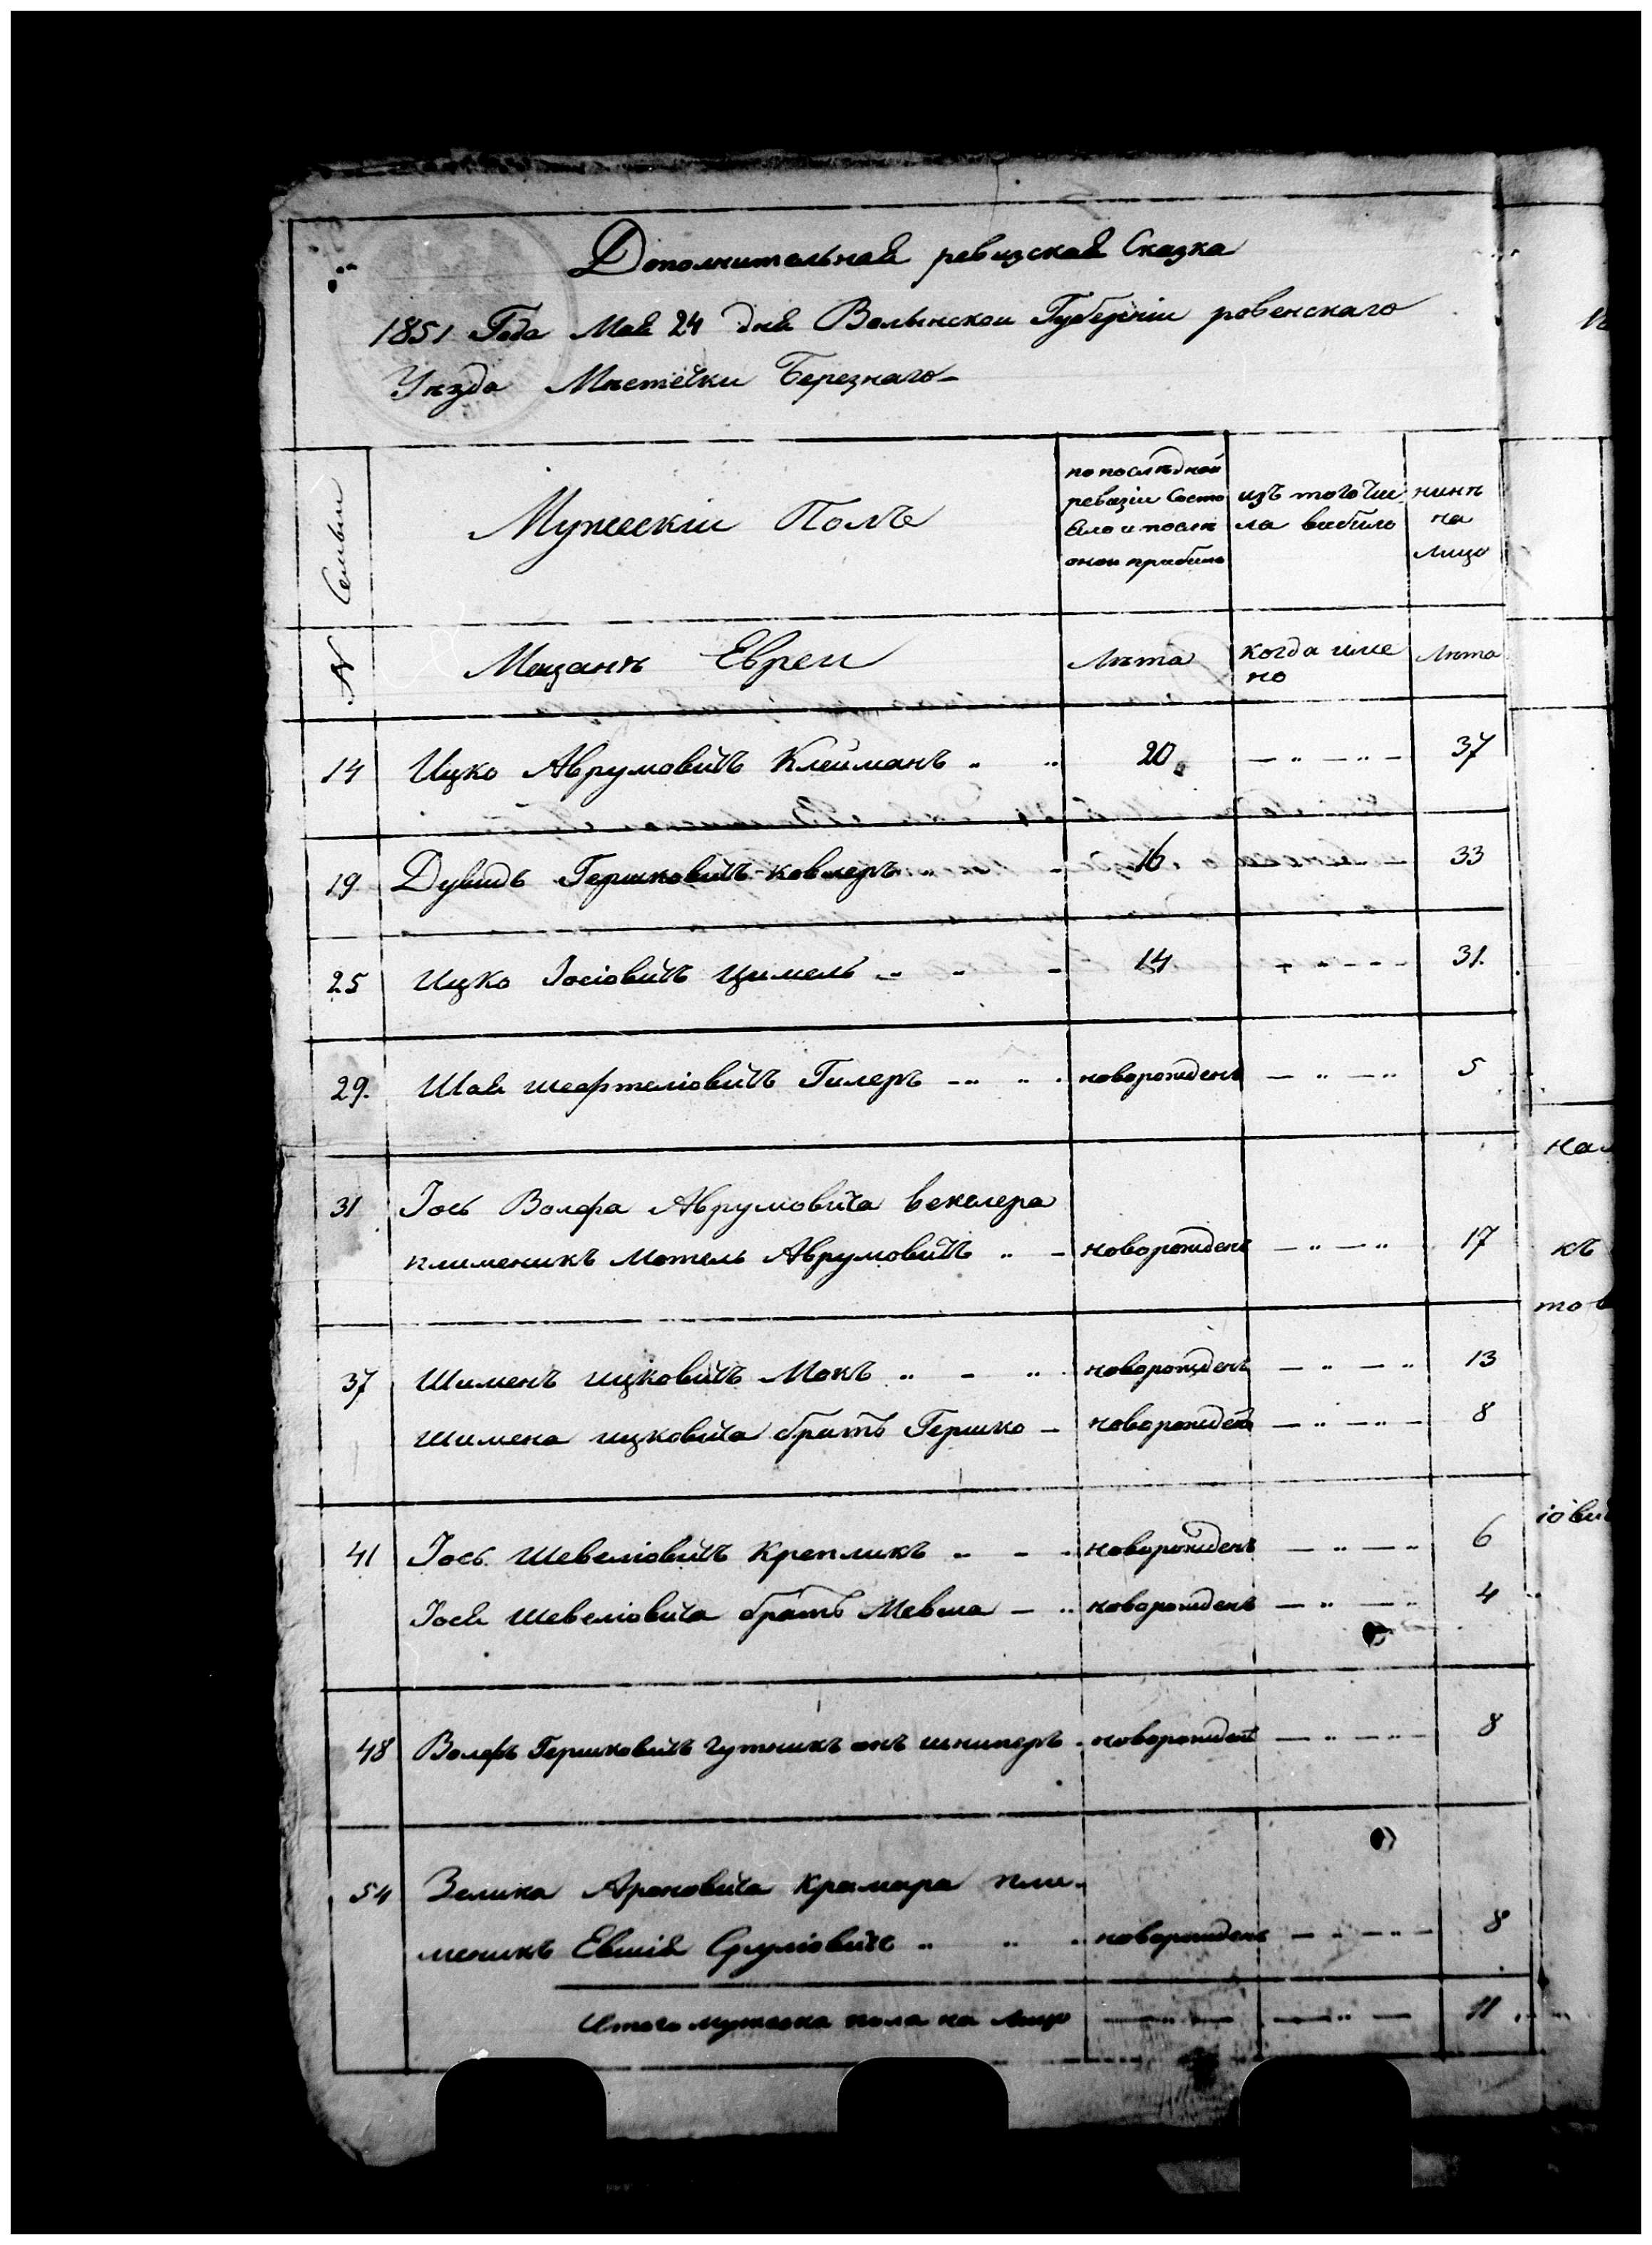 Дополнительная ревизская Сказка
1851 Года Мая 24 дня Волынскои Губерніи ровенскаго
Уѣзда Мѣстечки Березнаго
Семьи
Мужескіи Полъ
по послѣдной
ревизіи Состо
яло и послѣ
онои прибило
изъ того чис
ла выбило
нинѣ
на
лицо
№
Мещанѣ Евреи
Лѣта
когда име
но
Лѣта
14 Ицко Аврумовичъ Клейманъ 20 37
19 Дувидъ Гершковичъ ковлеръ 16 33
25 Ицко Іосіовичъ Цимель 14 31
29. Шая шефтеліовичъ Гилеръ новорожденъ 5
31 Іось Волфа Аврумовича векслера
племеникъ Мотель Аврумовичъ новорожденъ 17
37 Шименъ ицковичъ Мокъ новорожденъ 13
Шимена ицковича братъ Гершко новорожденъ 8
41 Іось Шевеліовичъ Крепликъ новорожденъ 6
Іося Шевеліовича братъ Мевша новорожденъ 4
48 Волфъ Гершковичъ Гутникъ онъ шниперъ новорожденъ 8
54 Зелика Ароновича Крамара пле
меникъ Евшія Сруліовичъ новорожденъ 8
Итого мужеска пола на лицо 11